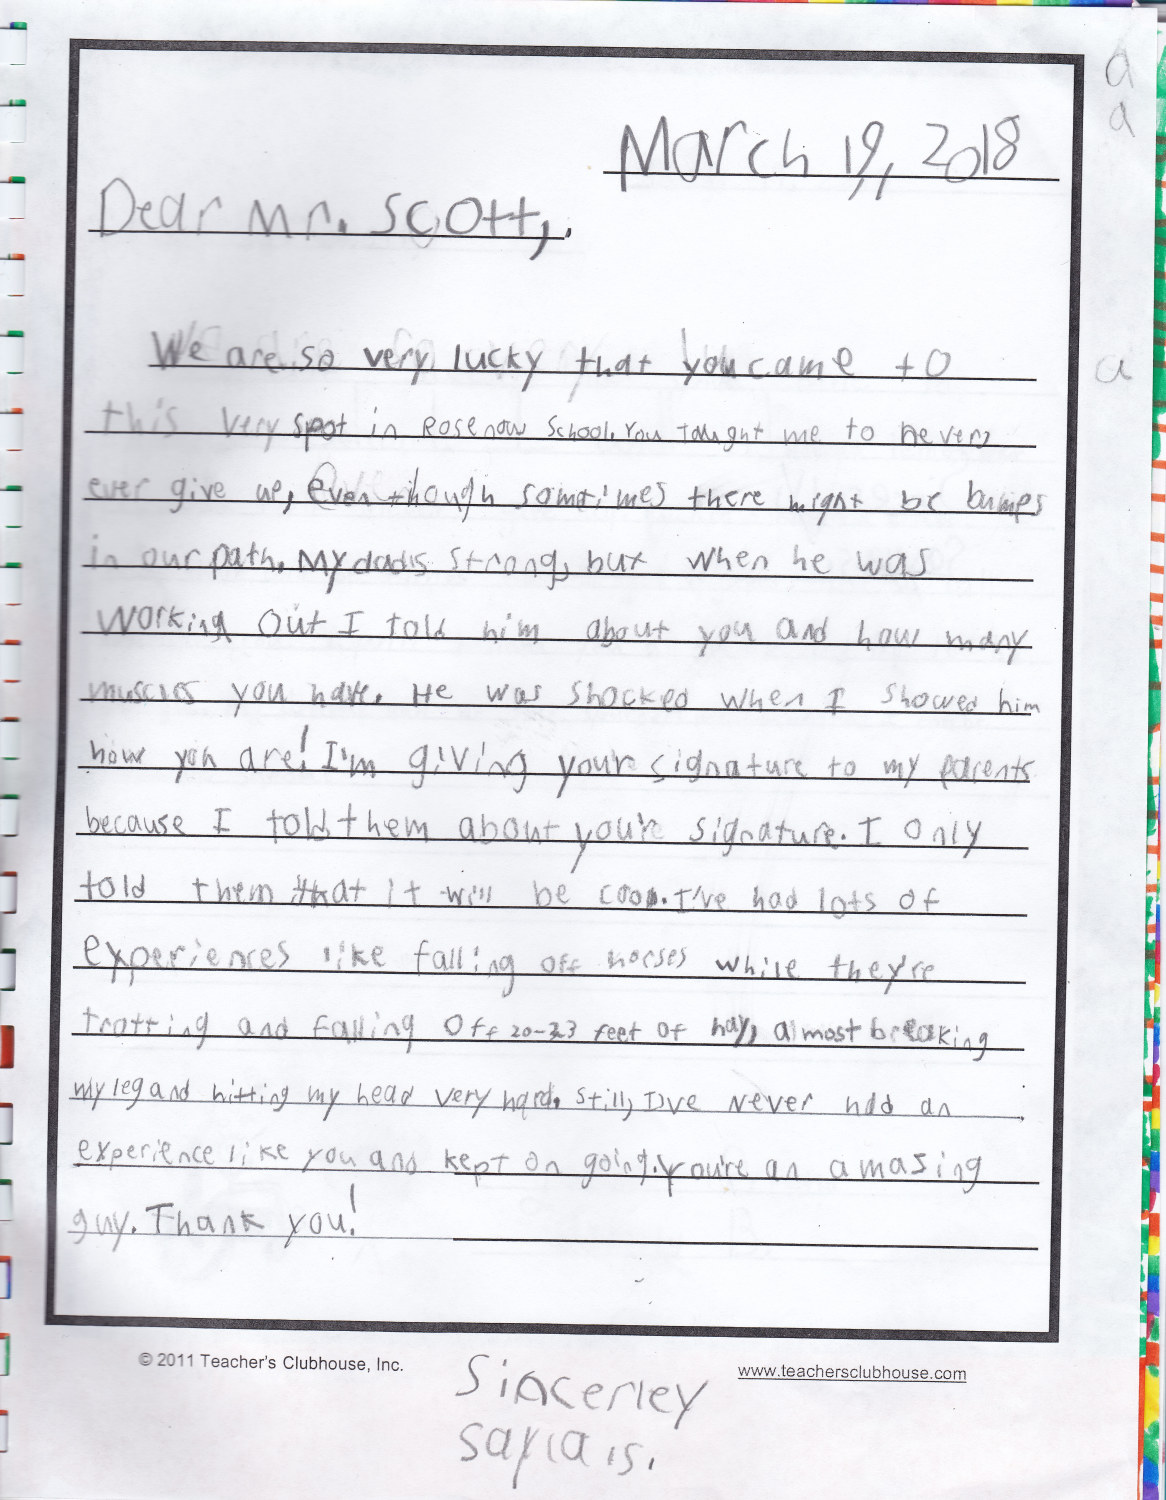 March 19, 2018
Dear Mr. Scott,.
We are so very lucky that you came to
this very spot in Rosenow School. You taught me to never
ever give up, even though sometimes there might be bumps
in our path. My dad is strong, but when he was
working out I told him about you and how many
muscles you have. He was shocked when I showed him
how you are! I'm giving your signature to my parents
because I told them about your signature. I only
told them that it will be cool. I've had lots of
experiences like falling off horses while they're
trotting and falling off 20-23 feet of hay, almost breaking
my leg and hitting my head very hard. Still, I've never had an
experience like you and kept on going. You're an amasing
guy. Thank you!
© 2011 Teacher's Clubhouse, Inc.
www.teachersclubhouse.com
Sincerley
a
a
a